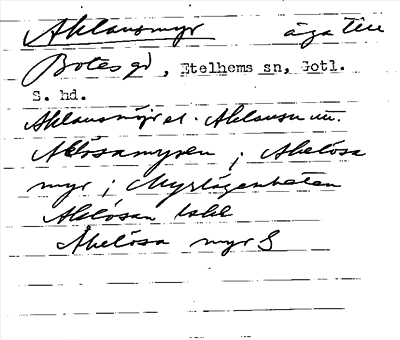 Aklausmyr äga till
Botes gd, Etelhems sn, Gotl.
S. hd.
Aklausmyr el. Aklausu m.
Aklosamyren ; Akelösa
myr ; Myrlägenheten
Aklösan kald
Akelösa myr S